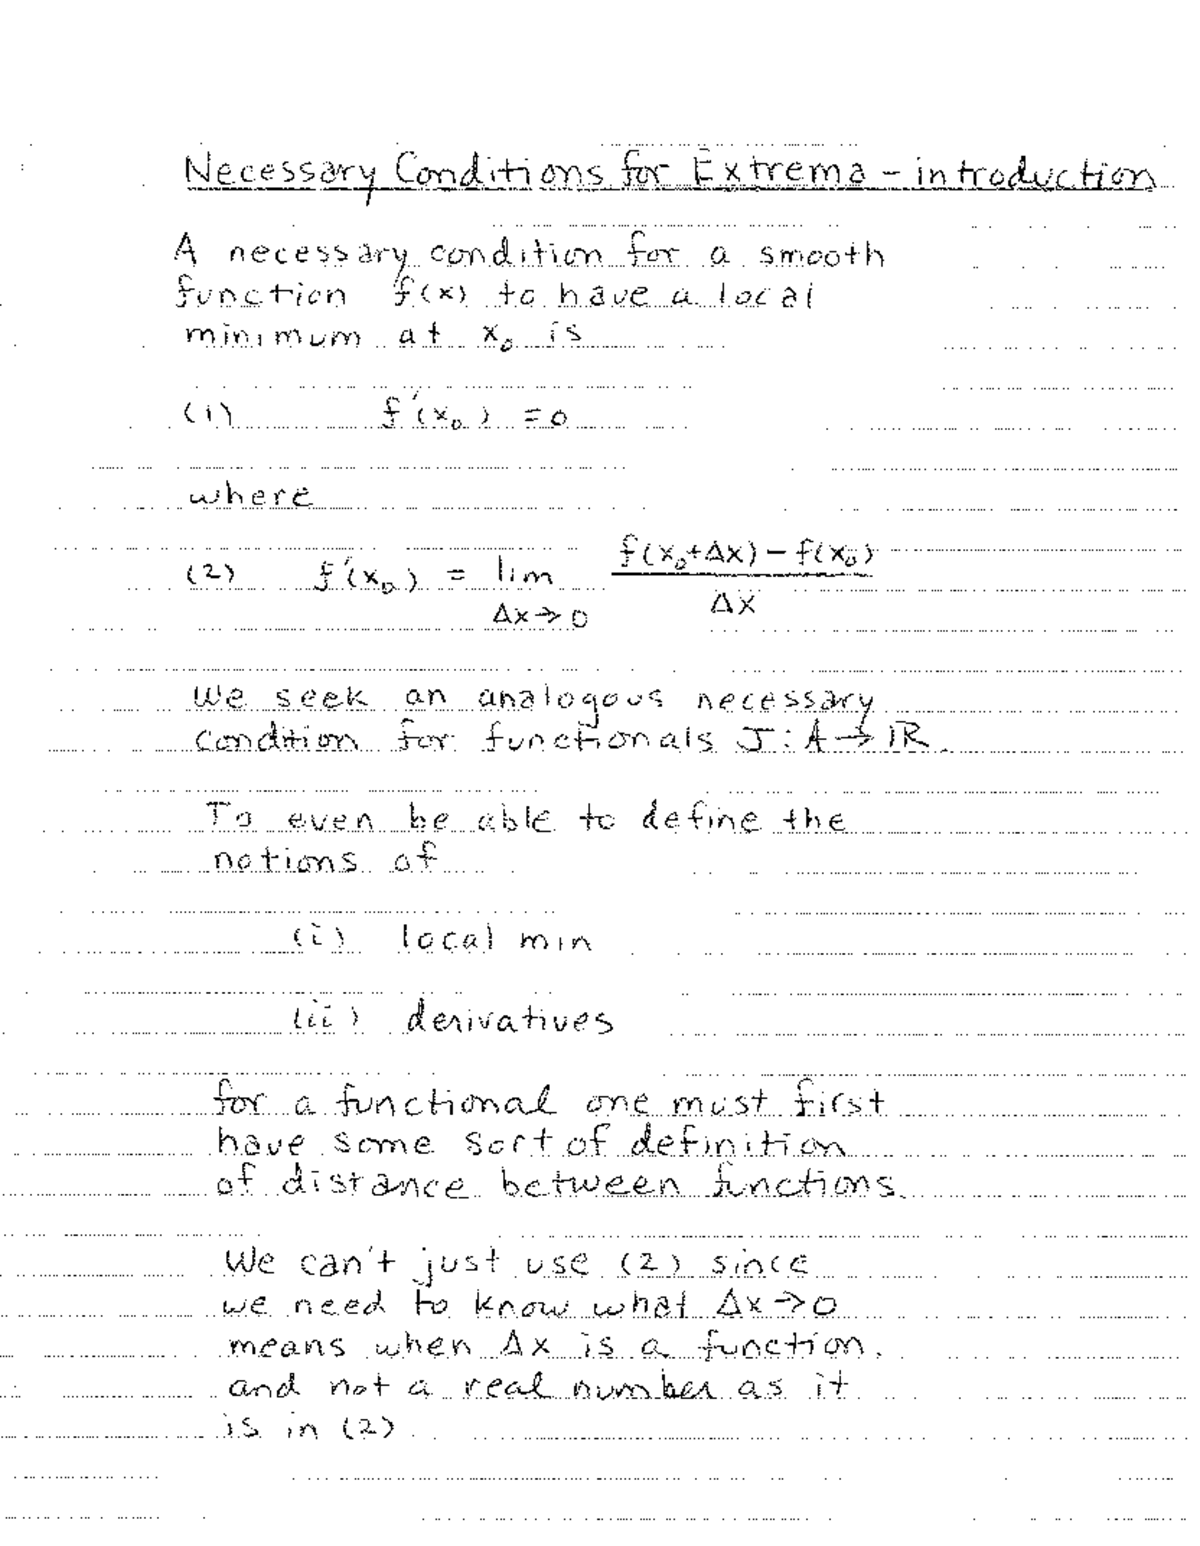 Necessary Conditions for Extrema - introduction
A necessary condition for a smooth
function f(x) to have a local
minimum at x₀ is
(1) f'(x₀) = 0
where
(2) f'(x₀) = lim Δx→0 f(x₀+Δx) - f(x₀) / Δx
We seek an analogous necessary
condition for functionals J : A → ℝ.
To even be able to define the
notions of
(i) local min
(ii) derivatives
for a functional one must first
have some sort of definition
of distance between functions.
We can't just use (2) since
we need to know what Δx→0
means when Δx is a function.
and not a real number as it
is in (2)